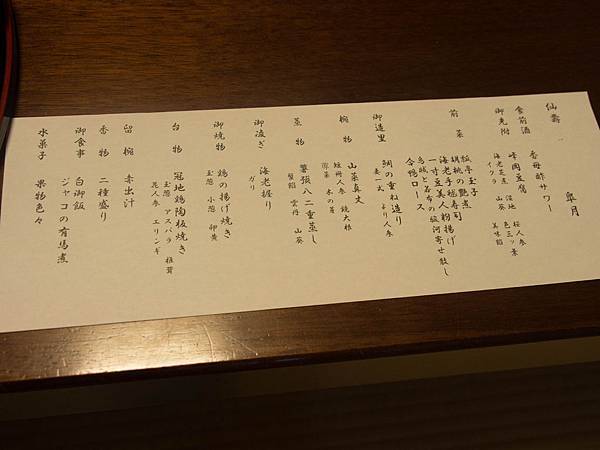 仙壽　皐月
食前酒　香母酢サワー
御先附　峰岡豆腐
海老芝煮　山葵　美味餡
イクラ
前菜　板亭玉子
胡桃の艶煮
海老手毬寿司
一寸豆美人粉揚げ
鳥城と若布の駿河寄せ散し
合鴨ロース
御造里　鯛の重ね造り
妻一式　より人参
椀物　山菜真丈
短冊人参　鏡大根
蒸物　饅頭八二重蒸し
蟹餡　雲丹　山葵
御凌ぎ　海老握り
ガリ
御焼物　鶏の揚げ焼き
玉葱　小葱　卵黄
台物　冠地鶏陶板焼き
玉葱　アスパラ　椎茸
人参　エリンギ
留椀　赤出汁
香物　二種盛り
御食事　白御飯
ジャコの有馬煮
水菓子　果物色々